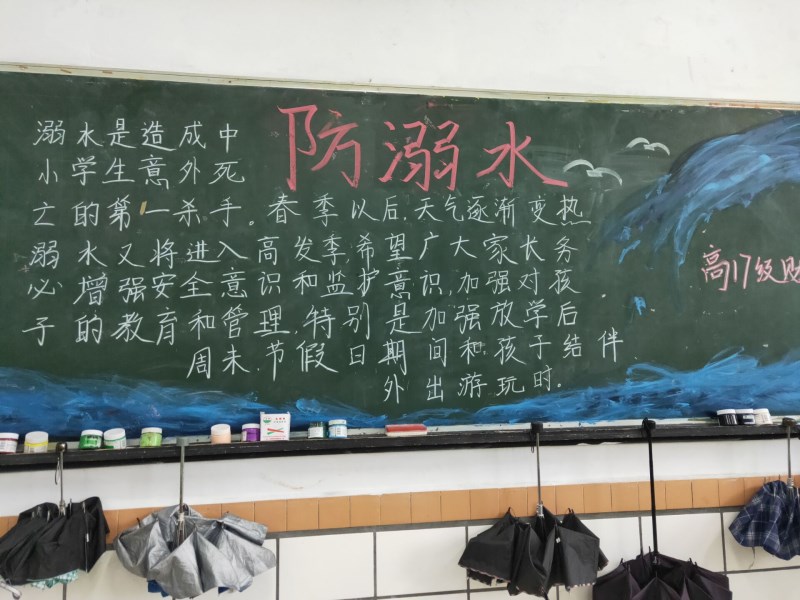 防溺水
溺水是造成中
小学生意外死
亡的第一杀手。春季以后,天气逐渐变热
溺水又将进入高发季,希望广大家长务
必增强安全意识和监护意识,加强对孩
子的教育和管理.特别是加强放学后
周末.节假日期间和孩子结伴
外出游玩时.
高17级财